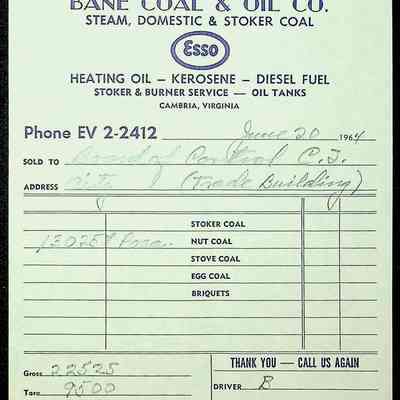 BANE COAL & OIL CO.
STEAM, DOMESTIC & STOKER COAL
Esso
HEATING OIL — KEROSENE — DIESEL FUEL
STOKER & BURNER SERVICE — OIL TANKS
CAMBRIA, VIRGINIA
Phone EV 2-2412 June 20 1964
SOLD TO Board of Control C.I.
ADDRESS City (Trade Building)
STOKER COAL
13025# NUT COAL
STOVE COAL
EGG COAL
BRIQUETS
Gross 22525
THANK YOU — CALL US AGAIN
Tare 9500
DRIVER B